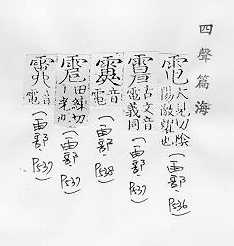 四聲篇海
大見切陰陽激耀也(雨部,P.536)
古文音電義同(雨部,P.537)
音電(雨部,P.538)
田練切(雨部,P.537)
音電(雨部,P.537)